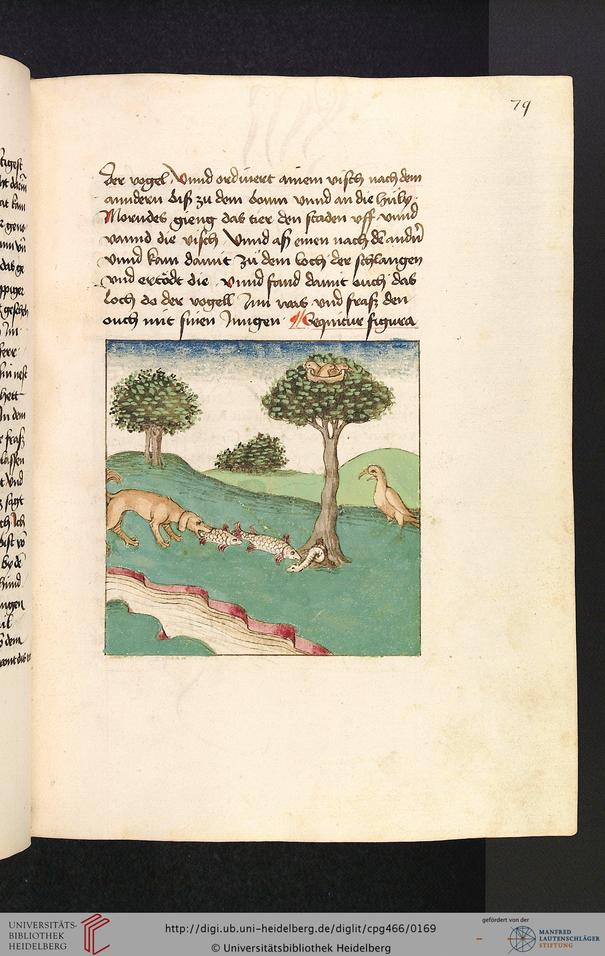 79
der vogel Vnnd ordiniert ainem visch nach dem
anndern biß zu dem boum vnnd an die hüly
Morndes gieng das tier den staden vff vnnd
vannd die visch Vnnd aß einen nach dē andn̄
vnnd kam damit zu dem loch der schlangen
vnd ertödt die vnnd fand damit ouch das
loch do der vogell Inn was vnd fraß den
ouch mit sinen Jungen Sequitur figura
UNIVERSITÄTS-
BIBLIOTHEK
HEIDELBERG
http://digi.ub.uni-heidelberg.de/diglit/cpg466/0169
© Universitätsbibliothek Heidelberg
gefördert von der
MANFRED
LAUTENSCHLÄGER
STIFTUNG